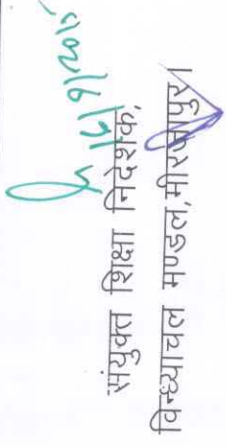 16/9/2015
संयुक्त शिक्षा निदेशक,
विन्ध्याचल मण्डल,मीरजापुर।